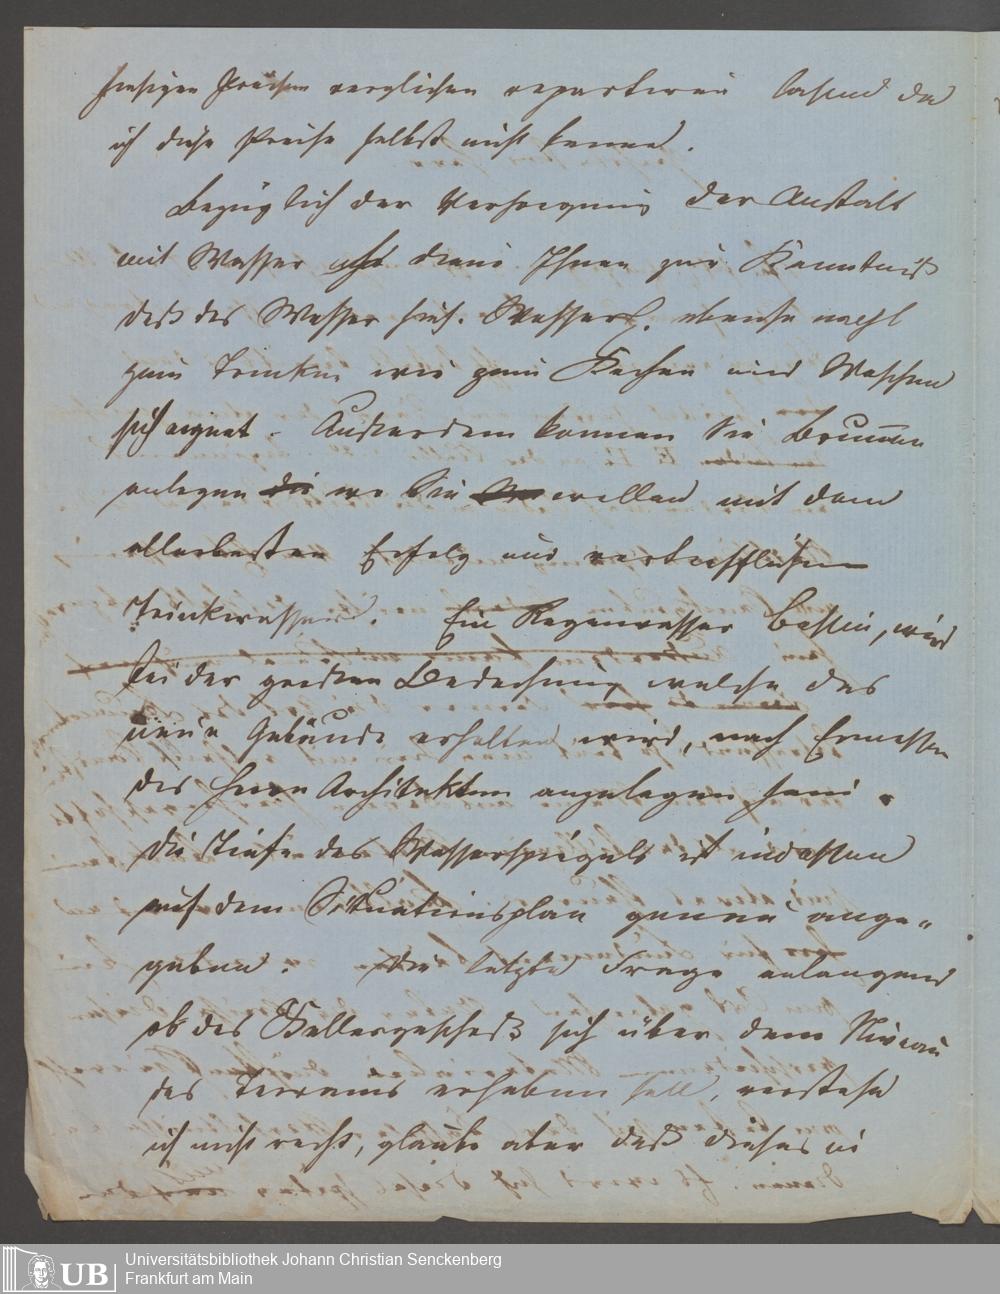 hiesigen Preisen verglichen repartiren lassen da
ich diese Preise selbst nicht kenne.
Bezüglich der Versorgung der Anstalt
mit Wasser diene Ihnen zur Kenntniß
daß das Wasser ebenso wohl
zum Trinken wie zum Kochen und Waschen
sich eignet. Außerdem können Sie Brunnen
anlegen wo Sie wollen mit dem
allerbesten Erfolg und vortrefflichem
Trinkwasser. Ein Regenwasser Bassin, wird
bei der großen Bedachung welche das
neue Gebäude erhalten wird, nach Ermessen
des Herrn Architekten angelegen sein.
die Tiefe des Wasserspiegels ist indessen
auf dem Situationsplan genau ange-
geben. Die letzte Frage anlangend
ob das Kellergeschoß sich über dem Niveau
des Terrains erheben soll, verstehe
ich nicht recht, glaube aber daß dieses in
Universitätsbibliothek Johann Christian Senckenberg
Frankfurt am Main
UB